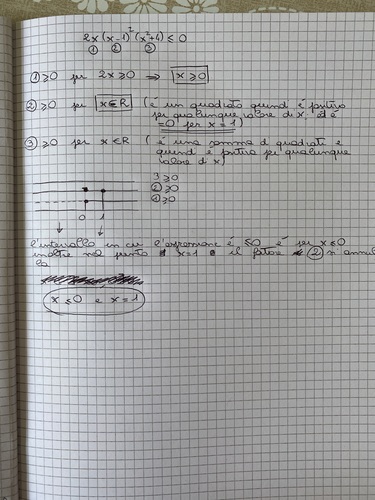 2x(x-1)²(x²+4) ≤ 0
① ② ③
① ≥0 per 2x ≥0 ⇒ x ≥0
② ≥0 per x∈R (è un quadrato quindi è positivo
per qualunque valore di x. Ed è
=0 per x=1)
③ ≥0 per x∈R (è una somma di quadrati e
quindi è positiva per qualunque
valore di x)
3 ≥0
② ≥0
① ≥0
0 1
l'intervallo in cui l'espressione è ≤0 è per x≤0
inoltre nel punto x=1 il fattore ② si annul
la.
x ≤0 e x=1